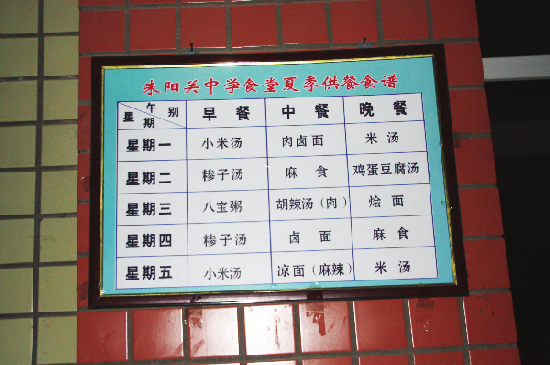 朱阳关中学食堂夏季供餐食谱
星期 午别 早餐 中餐 晚餐
星期一 小米汤 肉卤面 米汤
星期二 糁子汤 麻食 鸡蛋豆腐汤
星期三 八宝粥 胡辣汤（肉） 烩面
星期四 糁子汤 卤面 麻食
星期五 小米汤 凉面（麻辣） 米汤